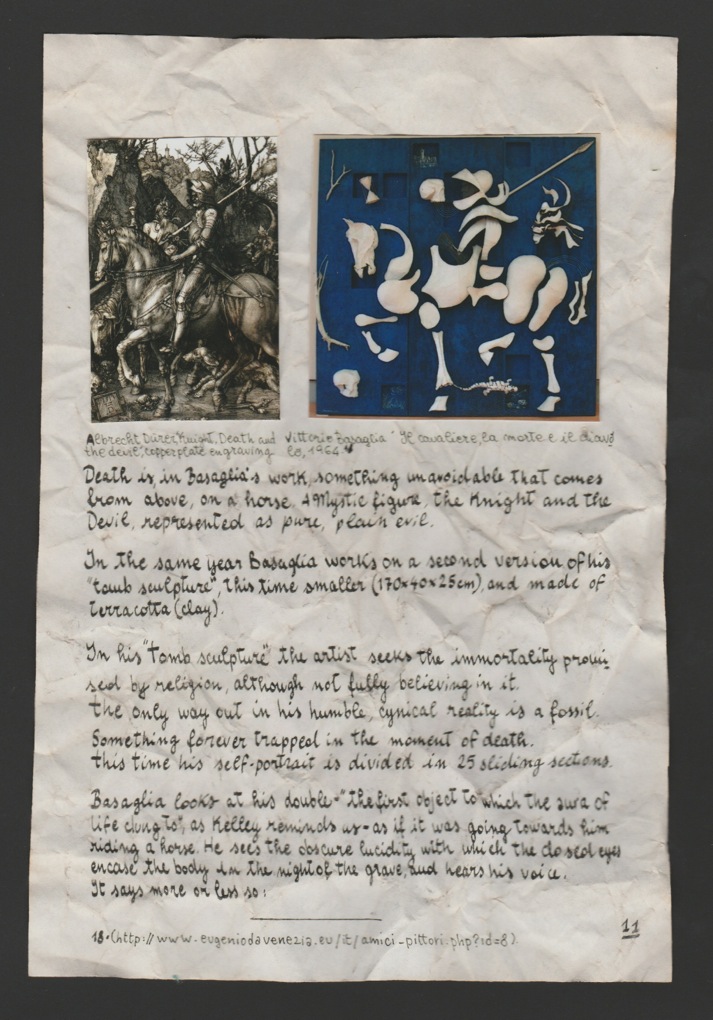 Albrecht Dürer, Knight, Death and
the devil, copperplate engraving
Vittorio Basaglia " Il cavaliere, la morte e il diavo
lo, 1964 "
Death is in Basaglia's work, something unavoidable that comes
from above, on a horse. A Mystic figure, the Knight and the
Devil, represented as pure, plain evil.
In the same year Basaglia works on a second version of his
"tomb sculpture", this time smaller (170x40x25cm), and made of
terracotta (clay).
In his "tomb sculpture" the artist seeks the immortality promi
sed by religion, although not fully believing in it.
the only way out in his humble, cynical reality is a fossil.
Something forever trapped in the moment of death.
this time his self-portrait is divided in 25 sliding sections.
Basaglia looks at his double-"the first object to which the aura of
life clung to", as Kelley reminds us-as if it was going towards him
riding a horse. He sees the obscure lucidity with which the closed eyes
encase the body in the night of the grave, and hears his voice.
It says more or less so:
18.(http://www.eugeniodavenezia.eu/it/amici-pittori.php?id=8)
11